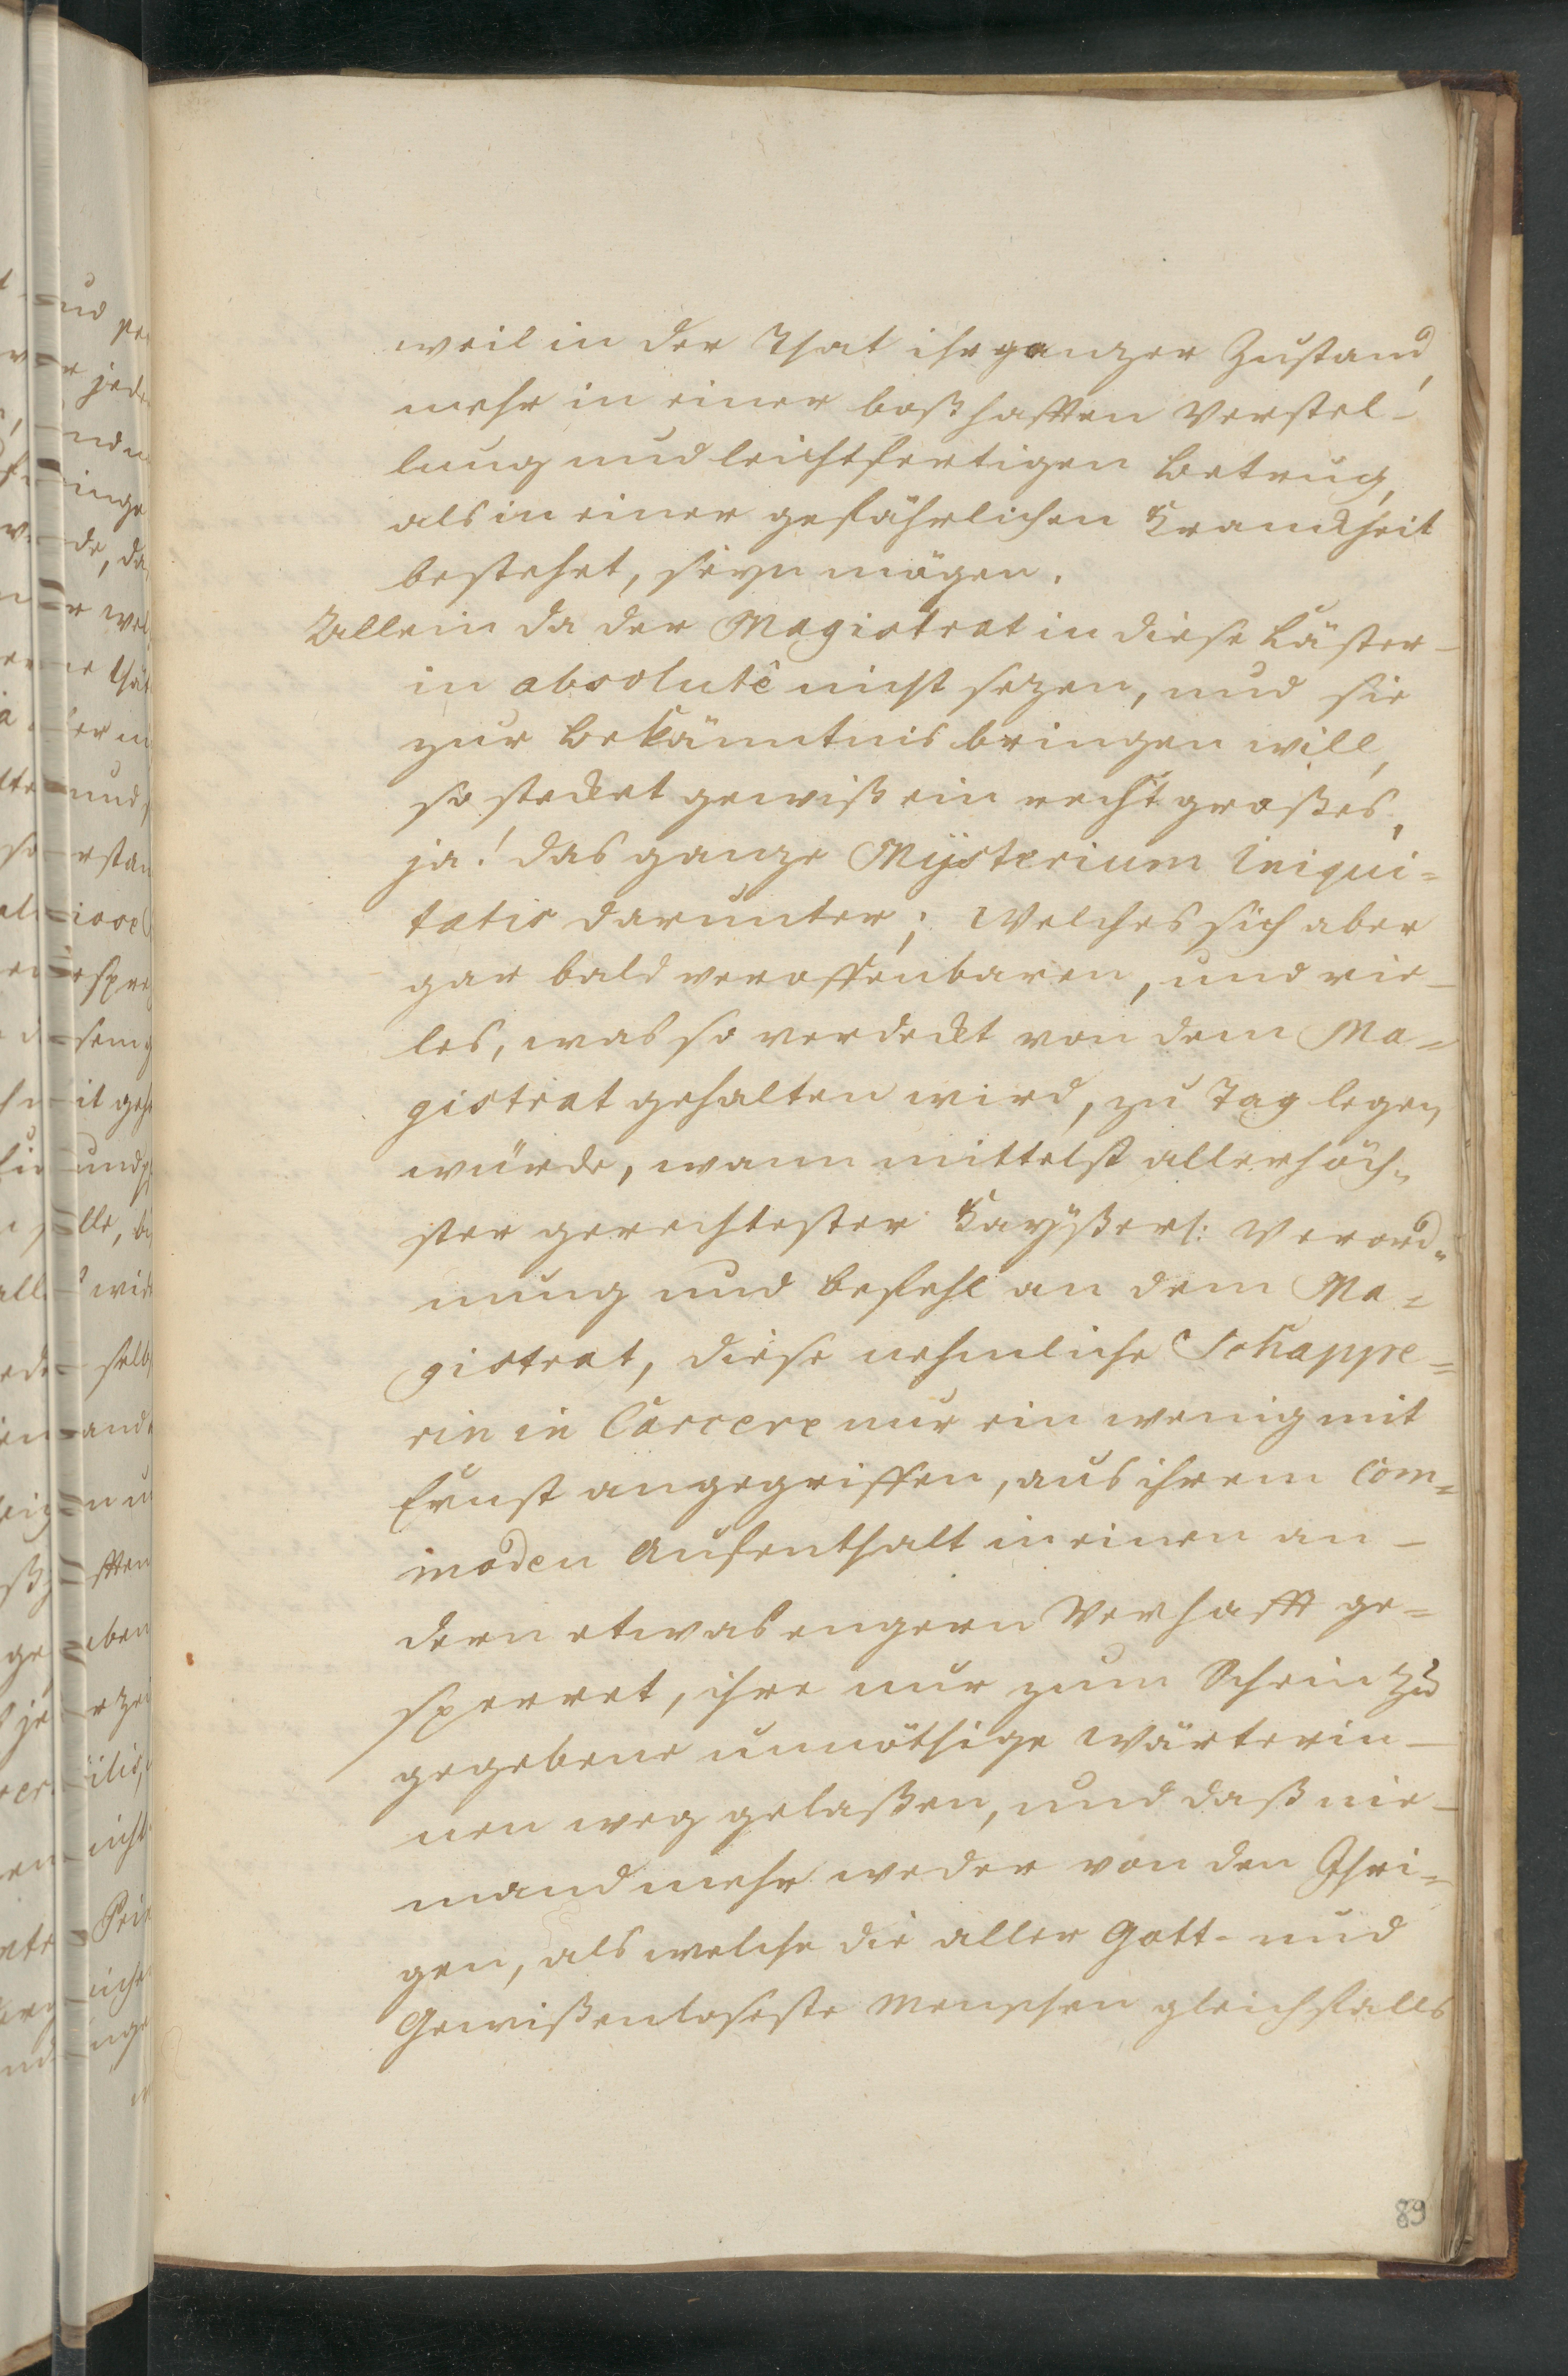 weil in der That ihr ganzer Zustand,
mehr in einer boßhafften Verstel-
lung und leichtfertigen Betrug,
als in einer gefährlichen Kranckheit
bestehet, seyn mögen.
Allein da der Magistrat in diese Läster-
in absolutê nicht sezen, und sie
zur Bekänntnis bringen will,
so stecket gewiß ein recht großes,
ja! das ganze Mÿsterium Iniqui=
tatis darunter; Welches sich aber
gar bald veroffenbaren, und vie-
les, was so verdeckt von dem Ma=
gistrat gehalten wird, zu Tag legen
würde, wann mittelst allerhöch-
ster gerechtester Kaÿßerl: Verord-
nung und Befehl an dem Ma=
gistrat, diese nehmliche Schappe=
rin in Carcere nur ein wenig mit
Ernst angegriffen, aus ihrem Com=
moden Aufenthalt in einen an-
dern etwas engern Verhafft ge=
sperret, ihre nur zum Schein zu
gegebene unnöthige Wärterin-
nen weg gelaßen, und daß nie-
mand mehr weder von den Ihri-
gen, als welche die aller Gott- und
Gewißenloseste Menschen gleichfalls
89